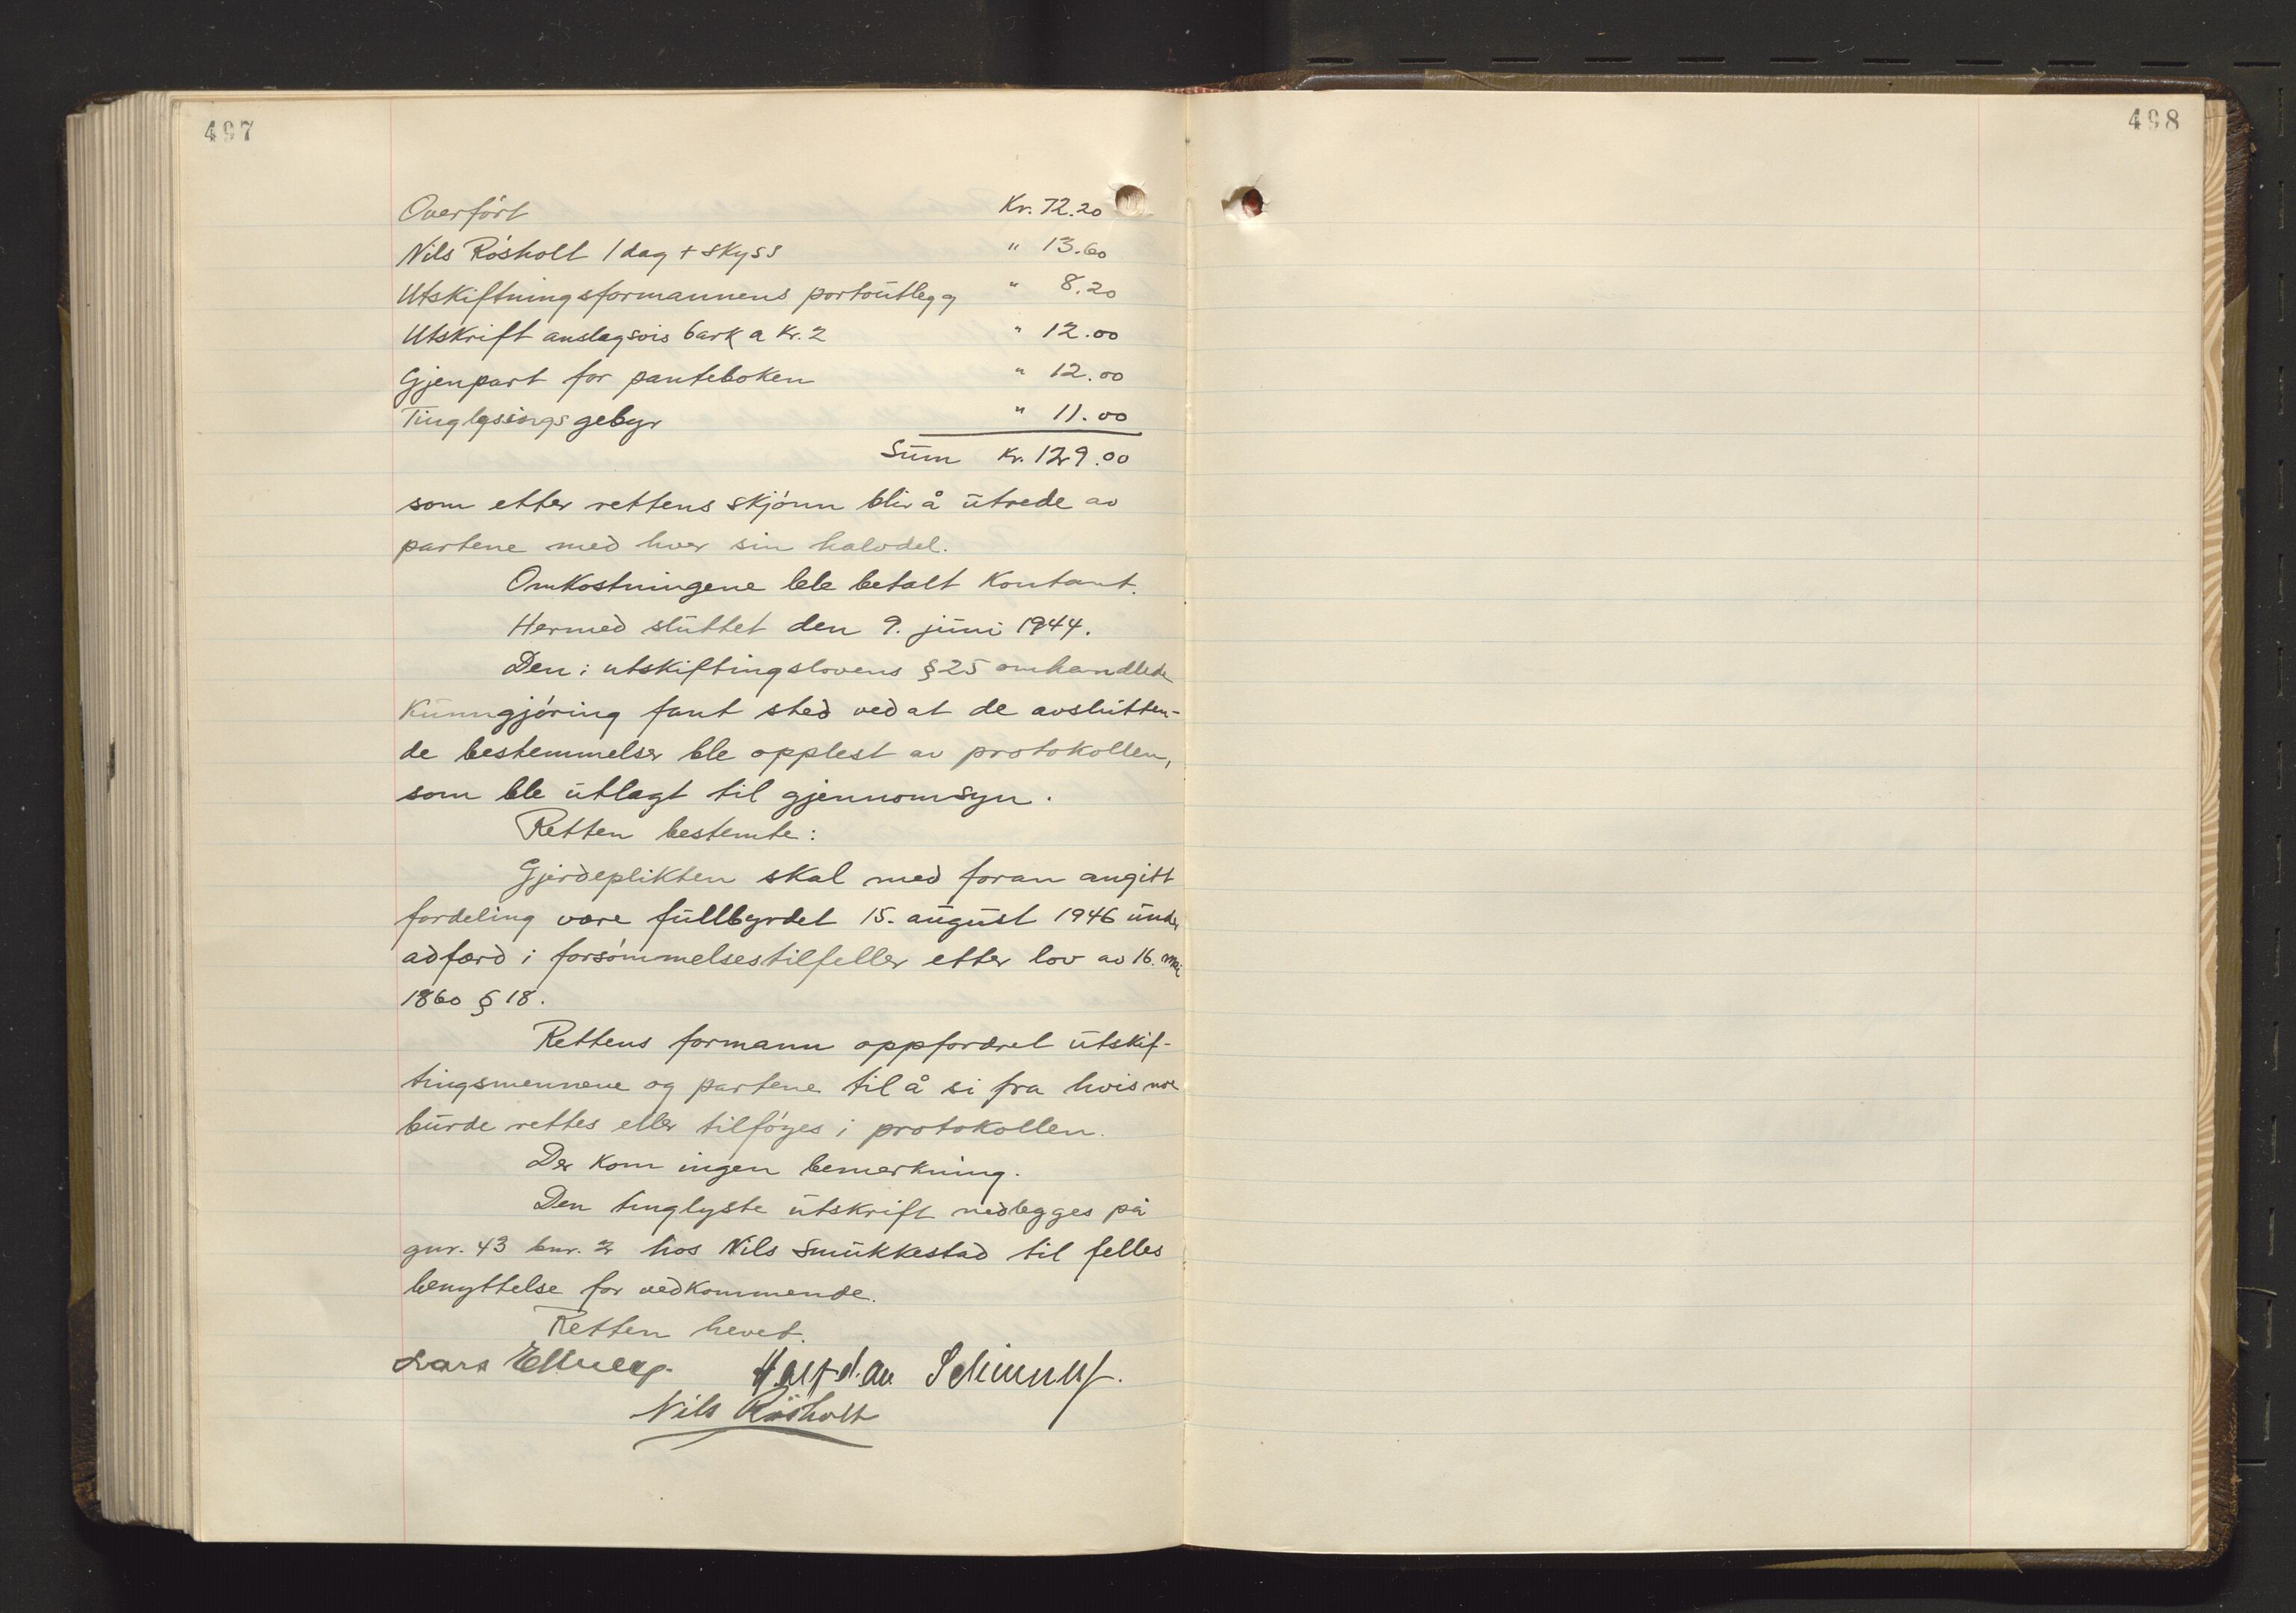 497
498
Overført Kr. 72.20
Nils Røsholt 1 dag + skyss " 13.60
Utskiftningsformannens portoutlegg " 8.20
Utskrift anslagsvis 6 ark a Kr. 2 " 12.00
Gjenpart for panteboken " 12.00
Tinglysingsgebyr " 11.00
Sum Kr. 129.00
som etter rettens skjønn blir å utrede av
partene med hver sin halvdel.
Omkostningene ble betalt kontant.
Hermed sluttet den 9. juni 1944.
Den i utskiftingslovens § 25 omhandlede
kunngjøring fant sted ved at de avslutten-
de bestemmelser ble opplest av protokollen,
som ble utlagt til gjennomsyn.
Retten bestemte:
Gjerdeplikten skal med foran angitt
fordeling være fullbyrdet 15. august 1946 under
adferd i forsømmelsestilfeller etter lov av 16. mai
1860 § 18.
Rettens formann oppfordret utskif-
tingsmennene og partene til å si fra hvis noe
burde rettes eller tilføyes i protokollen.
Der kom ingen bemerkning.
Den tinglyste utskrift nedlegges på
gnr. 43 bnr. 2 hos Nils Smukkestad til felles
benyttelse for vedkommende.
Retten hevet.
Lars Halfdan
Nils Røsholt